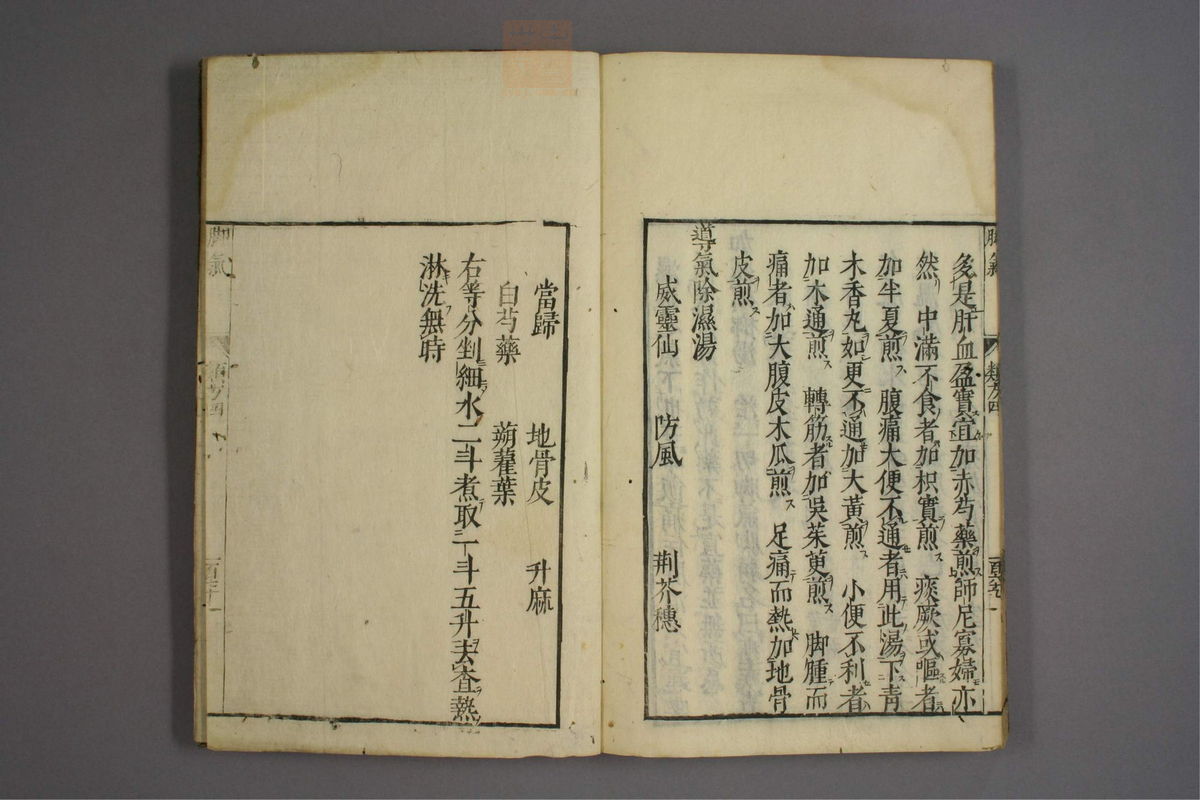 多是肝血盈實宜加赤芍藥煎師尼寡婦亦
然 中滿不食者加枳實煎 痰厥或嘔者
加半夏煎 腹痛大便不通者用此湯下青
木香丸如更不通加大黃煎 小便不利者
加木通煎 轉筋者加吳茱萸煎 脚腫而
痛者加大腹皮木瓜煎 足痛而熱加地骨
皮煎
導氣除濕湯
威靈仙 防風 荆芥穗
當歸 地骨皮 升麻
白芍藥 蒴藋葉
右等分剉細水二斗煮取一斗五升去査熱
淋洗無時
脚氣